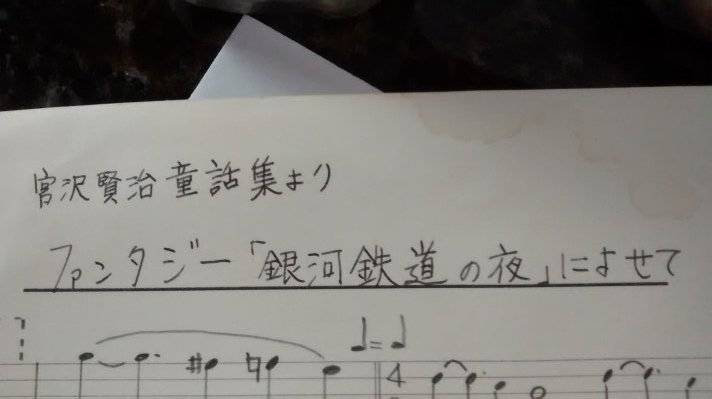 宮沢賢治童話集より
ファンタジー「銀河鉄道の夜」によせて
4